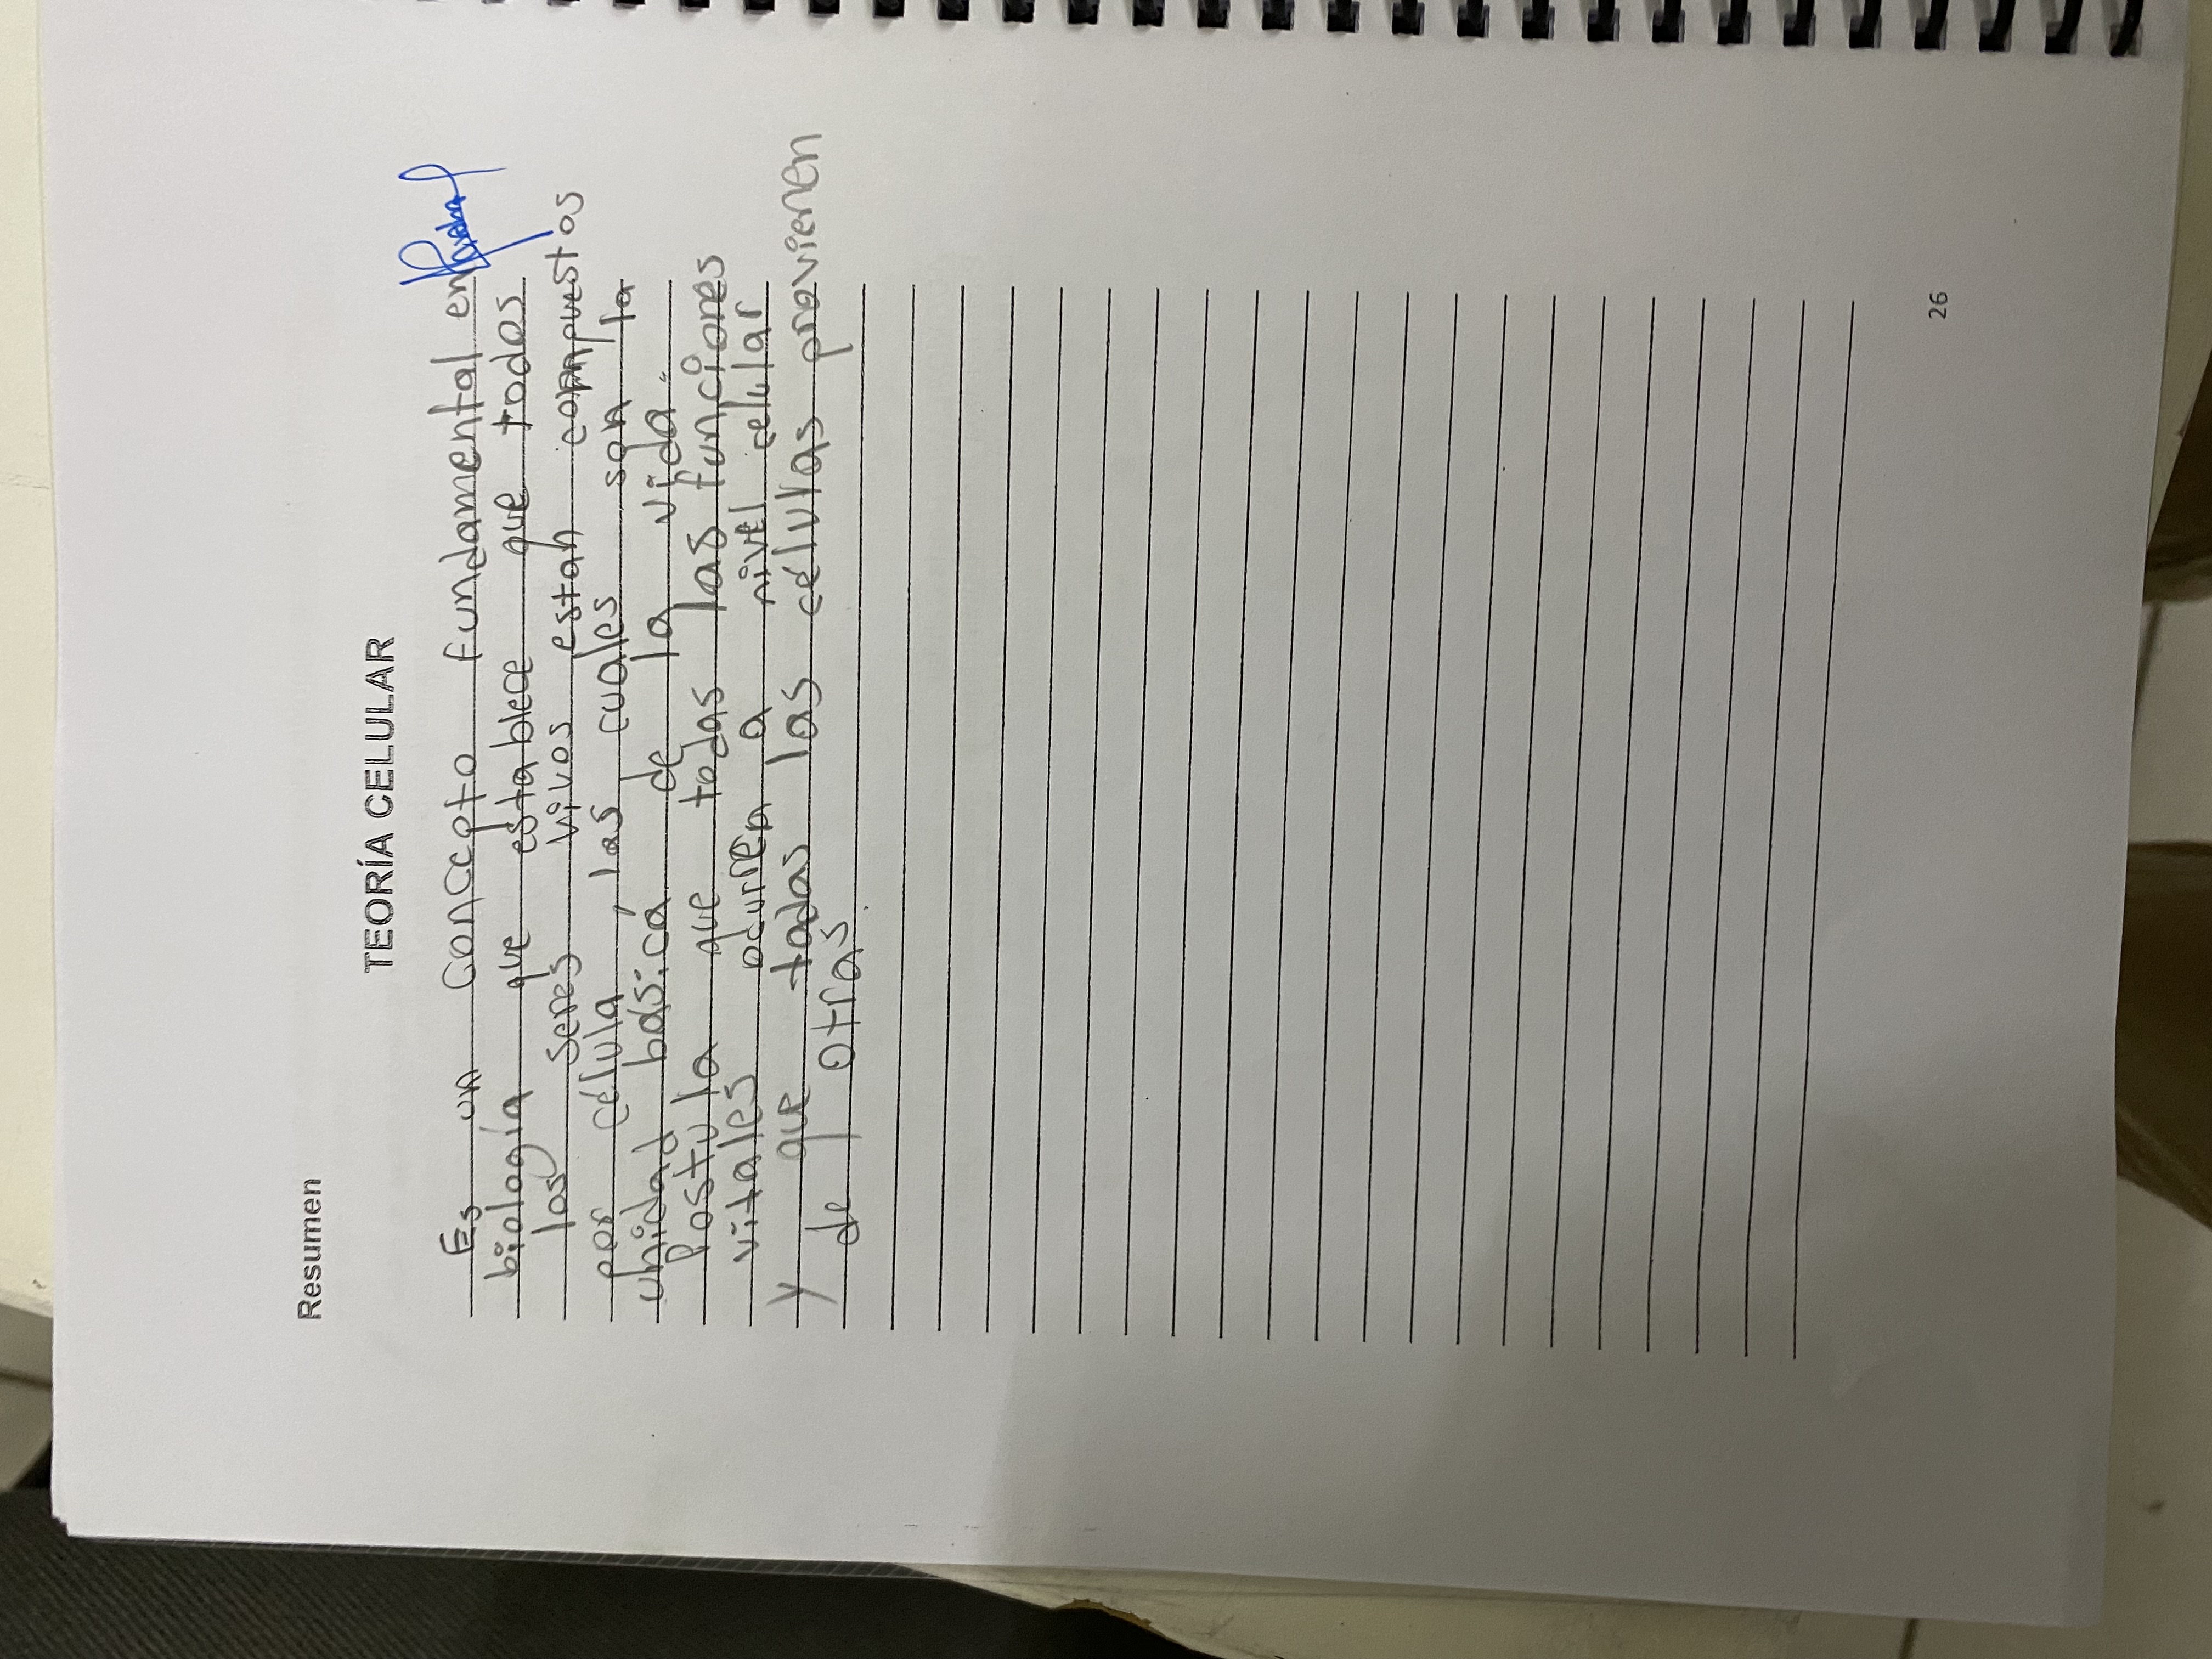 Resumen
TEORÍA CELULAR
Es un concepto fundamental en
biología que establece que todos
los seres vivos estan compuestos
por célula, las cuales son la
unidad básica de la vida.
Postula que todas las funciones
vitales ocurren a nivel celular
y que todas las células provienen
de otras
26